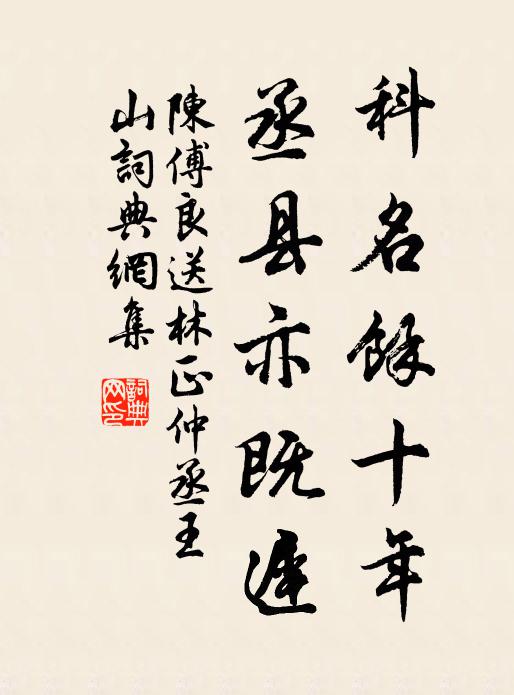 科名餘十年
丞县亦既遲
陳傅良送林正仲丞王
山詞典網集
詞典
网印